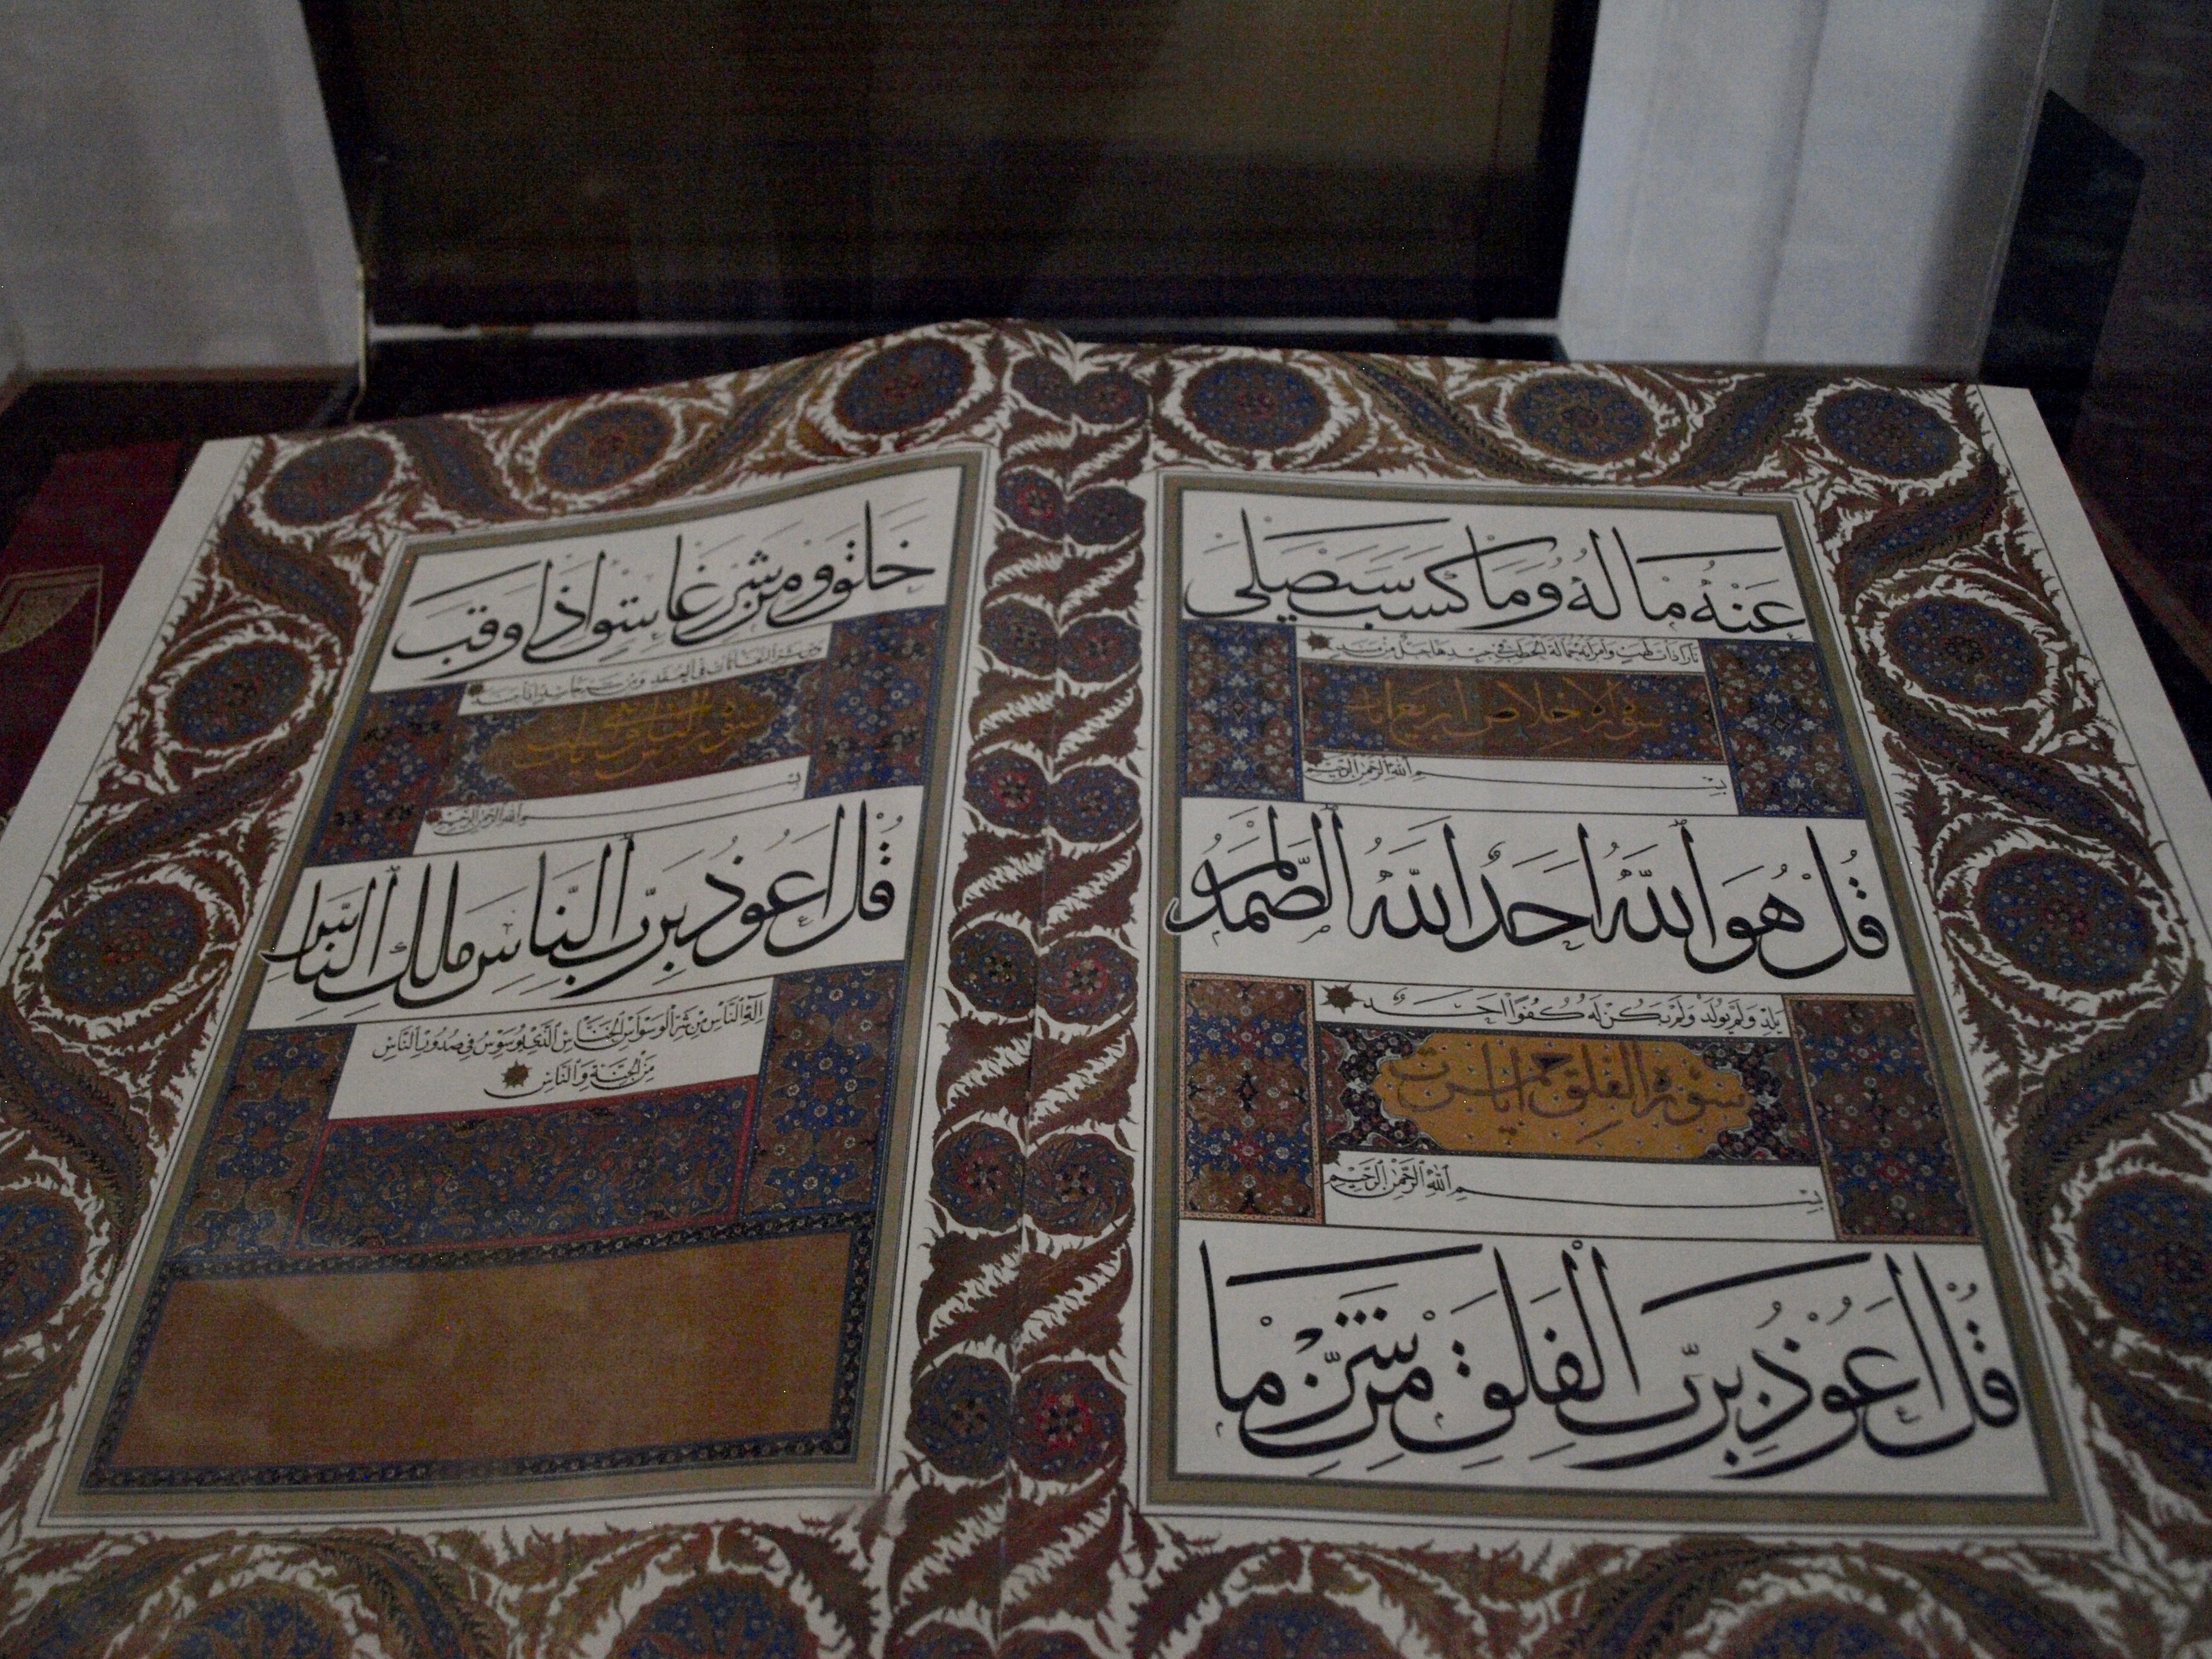 عَنْهُ مَا لُهُ وَمَا كَسَبَ سَيَصْلَىٰ
نَارًا ذَاتَ لَهَبٍ وَامْرَأَتُهُ حَمَّالَةَ الْحَطَبِ فِي جِيدِهَا حَبْلٌ مِنْ مَسَدٍ
سورة الإخلاص اربع ايات
بِسْمِ اللهِ الرَّحْمٰنِ الرَّحِيمِ
قُلْ هُوَ ٱللّٰهُ اَحَدٌ اَللّٰهُ ٱلصَّمَدُ لَمْ
يَلِدْ وَلَمْ يُولَدْ وَلَمْ يَكُنْ لَهُ كُفُوًا اَحَدٌ
سورة الفلق خمس ايات
بِسْمِ ٱللهِ ٱلرَّحْمٰنِ ٱلرَّحِيمِ
قُلْ اَعُوذُ بِرَبِّ الْفَلَقِ مِنْ شَرِّ مَا
خَلَقَ وَمِنْ شَرِّ غَاسِقٍ اِذَا وَقَبَ
وَمِنْ شَرِّ النَّفَّاثَاتِ فِي الْعُقَدِ وَمِنْ شَرِّ حَاسِدٍ اِذَا حَسَدَ
سورة الناس ايات
بِسْمِ اللهِ الرَّحْمٰنِ الرَّحِيمِ
قُلْ اَعُوذُ بِرَبِّ ٱلنَّاسِ مَلِكِ ٱلنَّاسِ
اِلٰهِ ٱلنَّاسِ مِنْ شَرِّ ٱلْوَسْوَاسِ ٱلْخَنَّاسِ ٱلَّذِي يُوَسْوِسُ فِي صُدُورِ ٱلنَّاسِ
مِنَ ٱلْجِنَّةِ وَٱلنَّاسِ